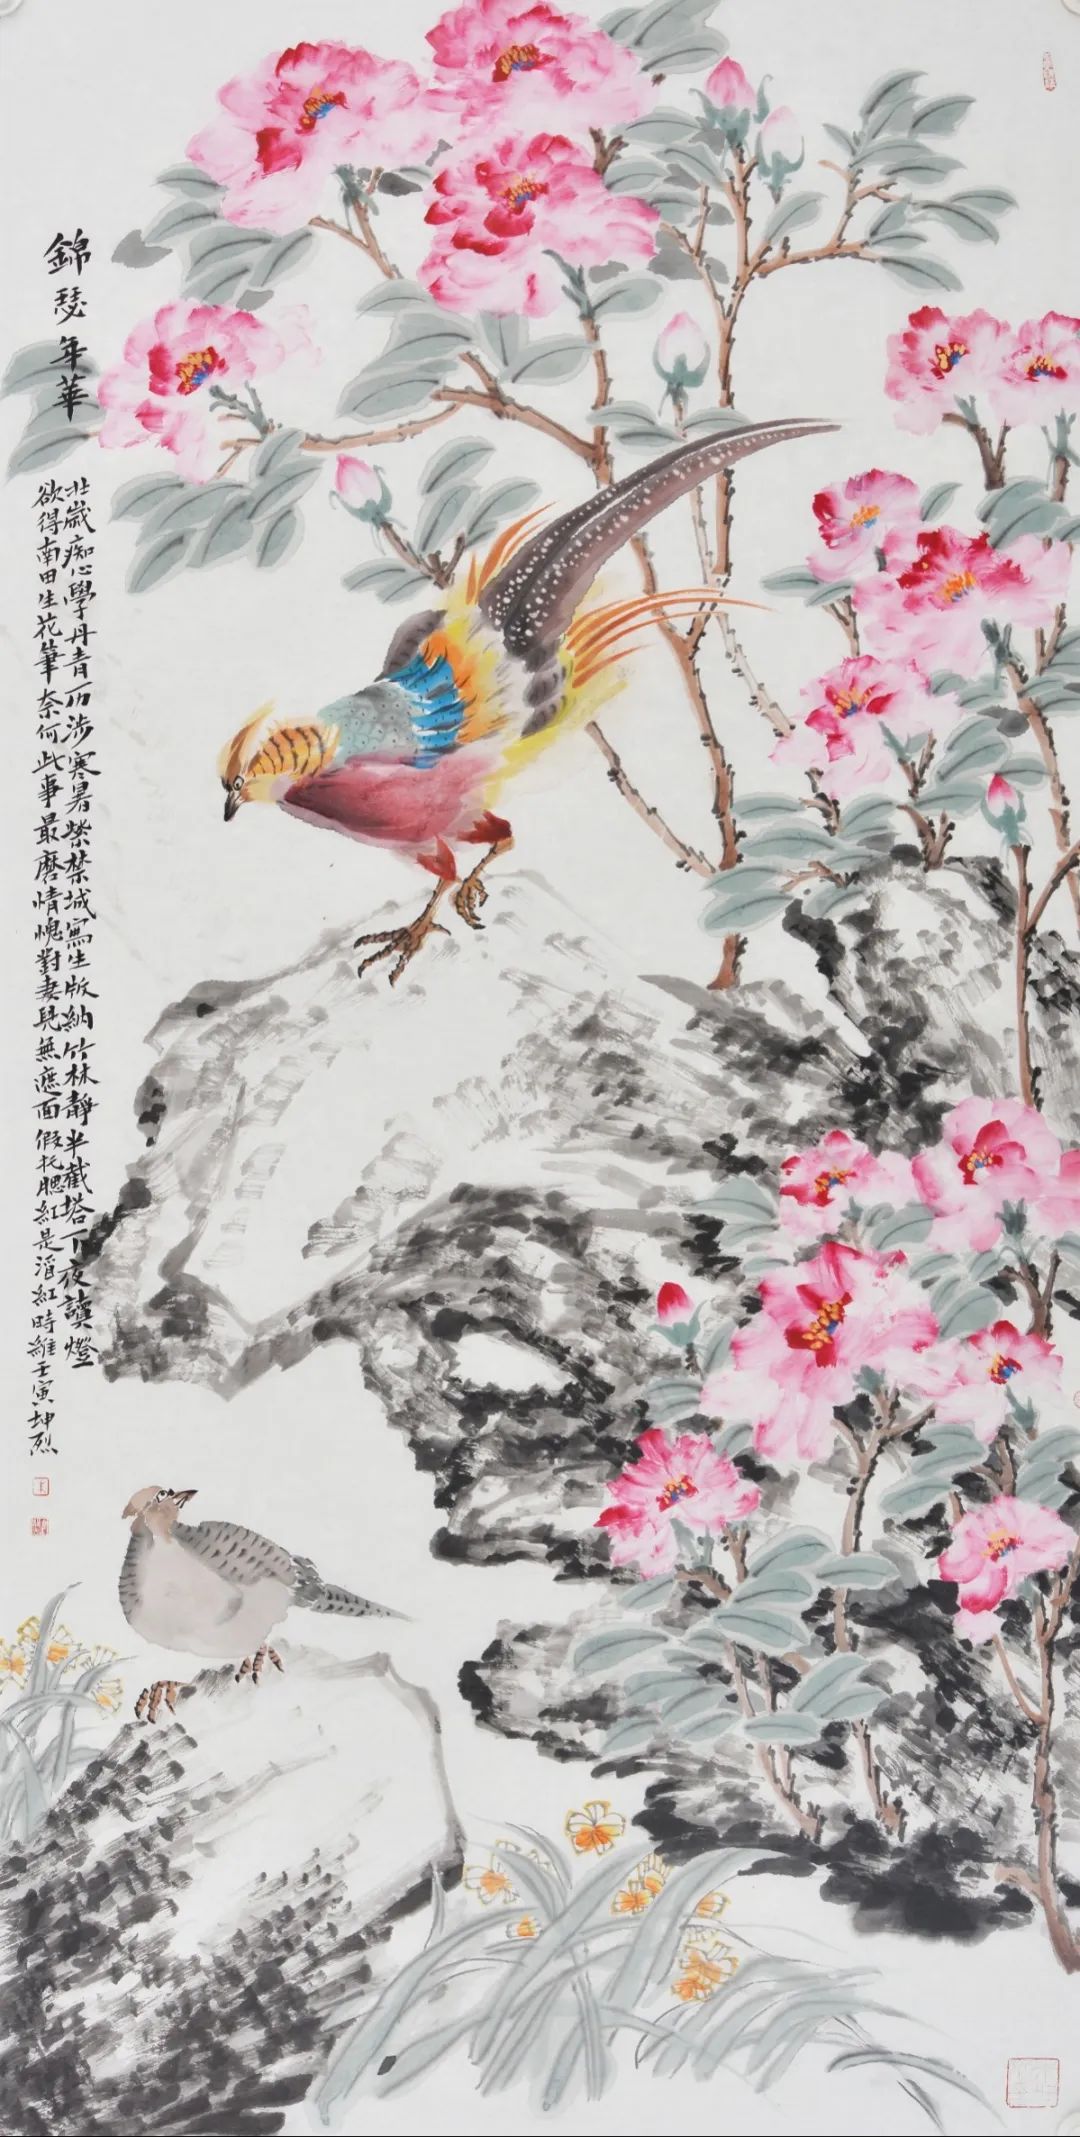 錦瑟年華
壮歲痴心學丹青涉寒暑紫禁城寫生版納竹林靜半截塔下夜讀燈
欲得南田生花筆奈何此事最磨情愧對妻兒無面假托腮紅是紅時維壬寅坤烈